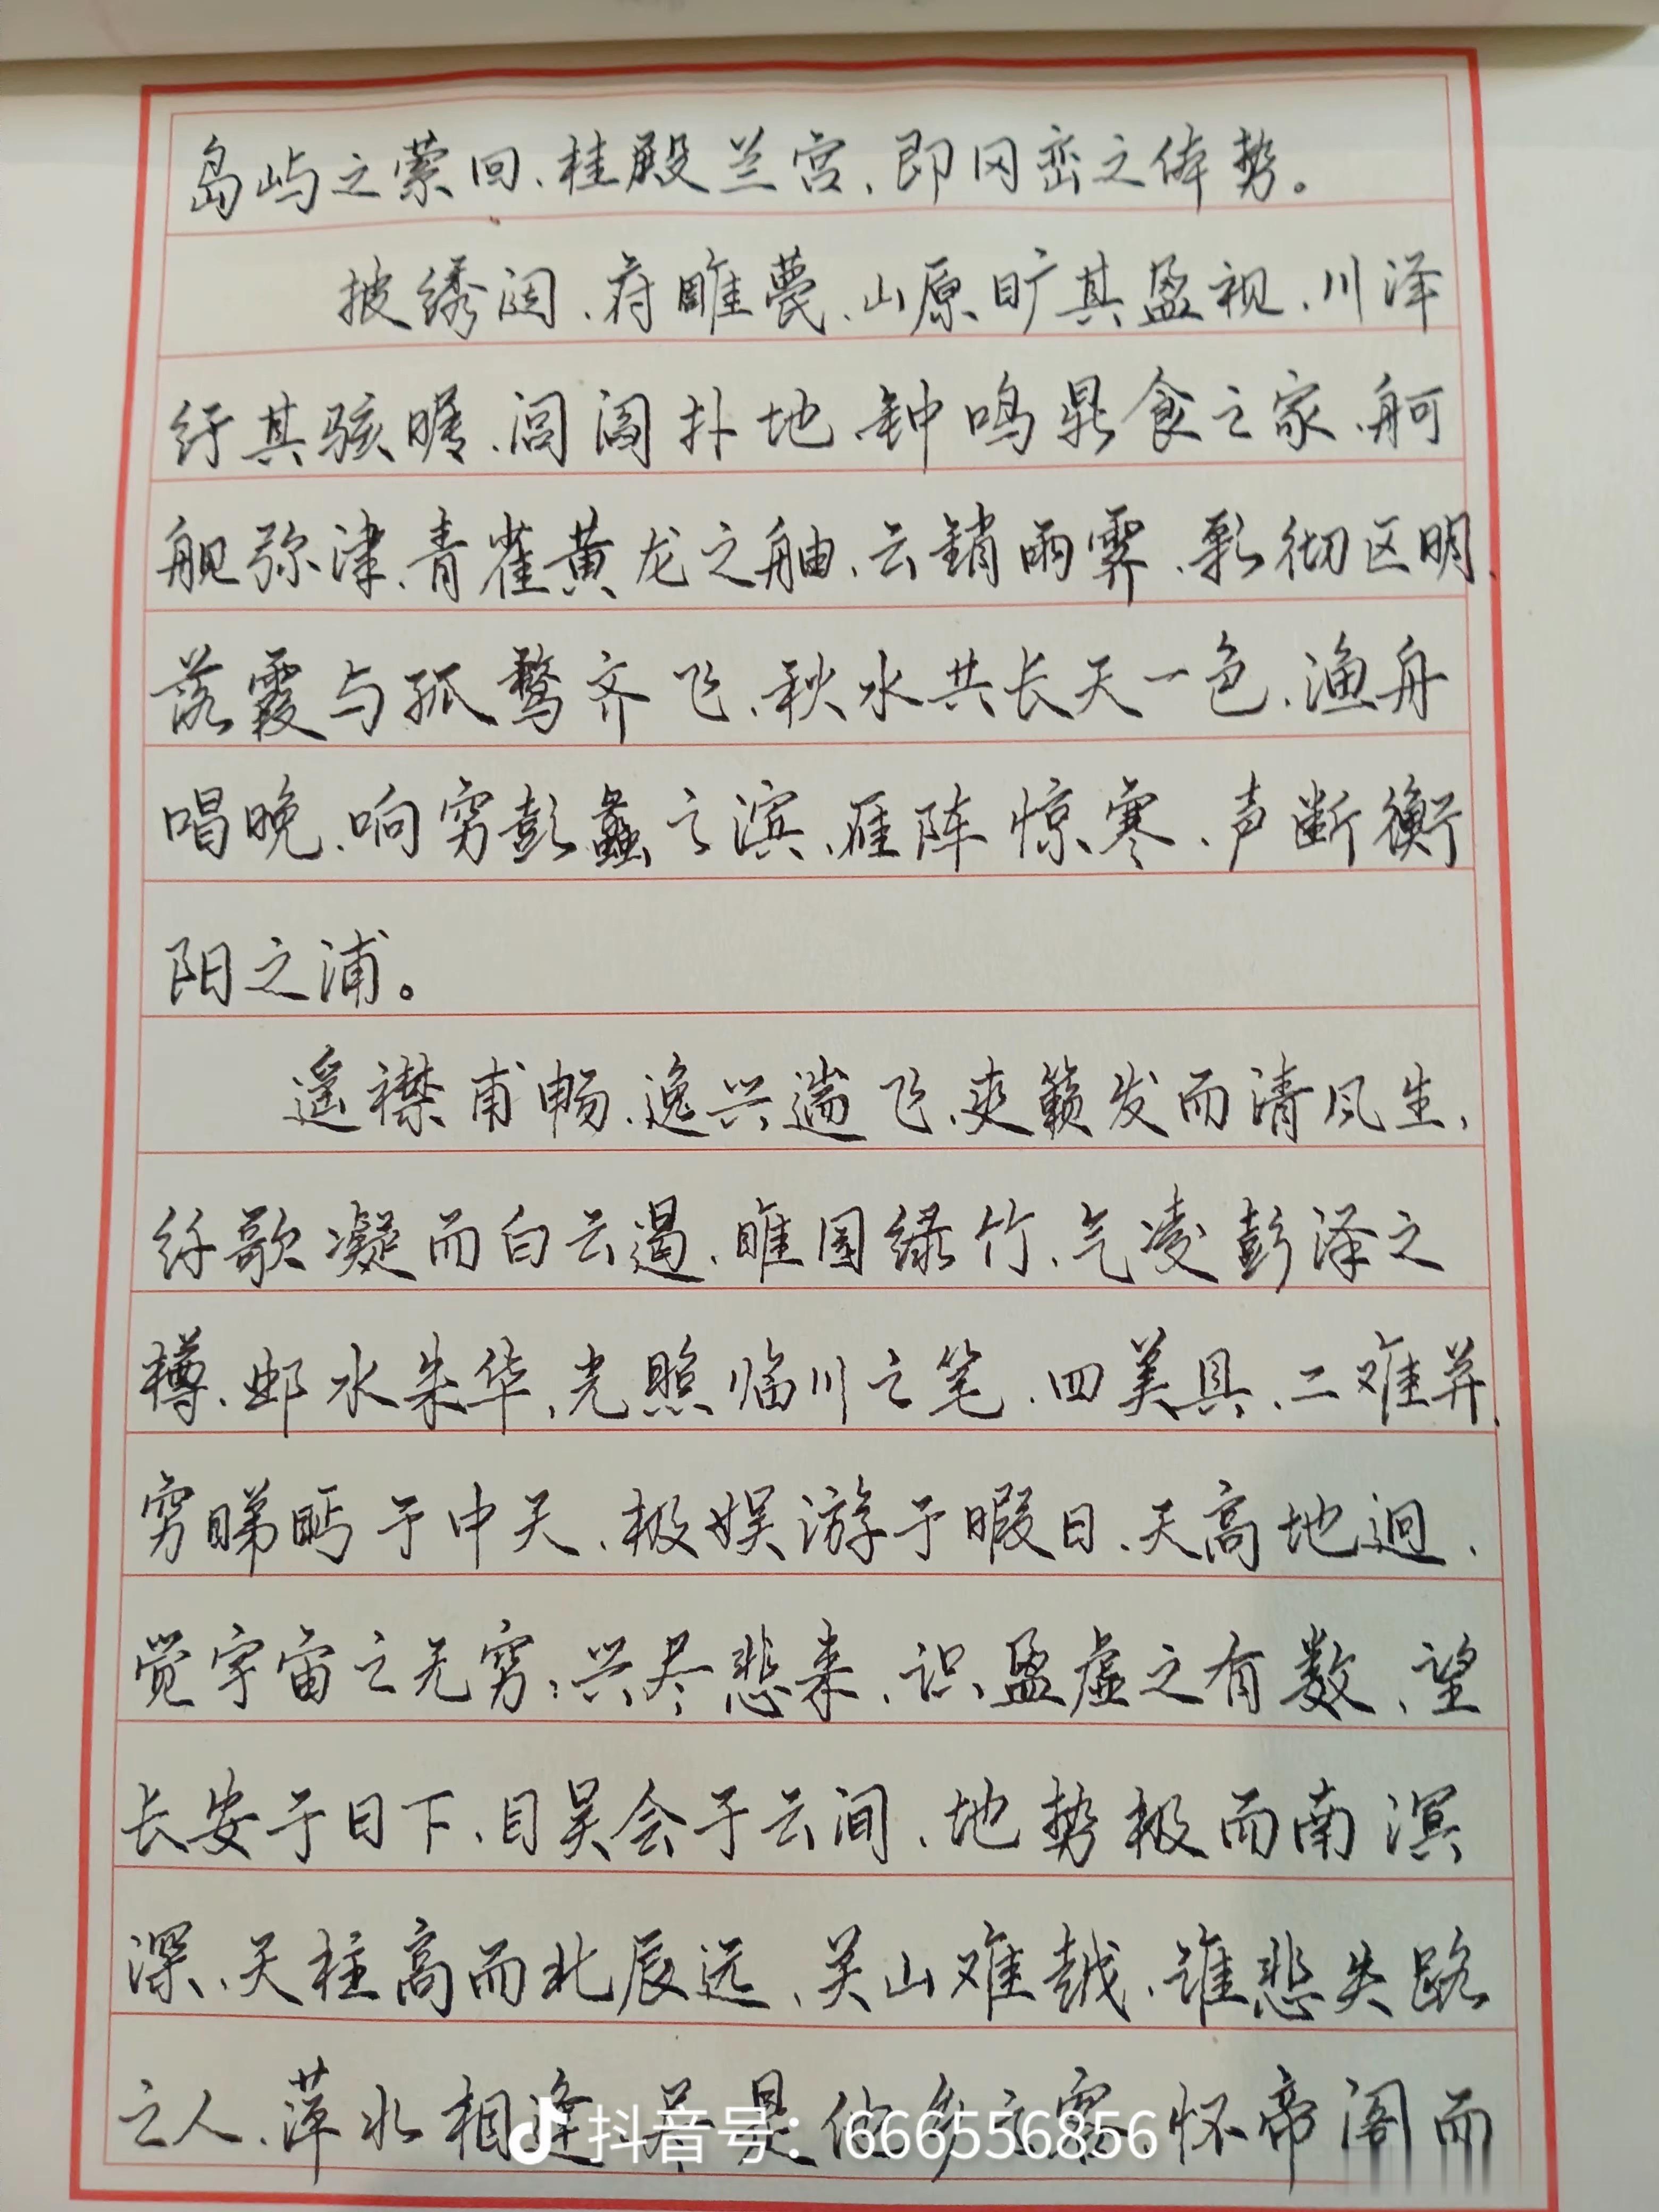 岛屿之萦回、桂殿兰宫、即冈峦之体势。
披绣闼、府雕甍、山原旷其盈视、川泽
纡其骇瞩、闾阎扑地、钟鸣鼎食之家、舸
舰弥津、青雀黄龙之舳、云销雨霁、彩彻区明、
落霞与孤鹜齐飞、秋水共长天一色、渔舟
唱晚、响穷彭蠡之滨、雁阵惊寒、声断衡
阳之浦。
遥襟甫畅、逸兴遄飞、爽籁发而清风生，
纤歌凝而白云遏、睢园绿竹、气凌彭泽之
樽、邺水朱华、光照临川之笔、四美具、二难并、
穷睇眄于中天、极娱游于暇日、天高地迥，
觉宇宙之无穷；兴尽悲来、识盈虚之有数、望
长安于日下、目吴会于云间、地势极而南溟
深、天柱高而北辰远、关山难越、谁悲失路
之人、萍水相逢 尽是他乡之客 怀帝阁而
抖音号：666556856